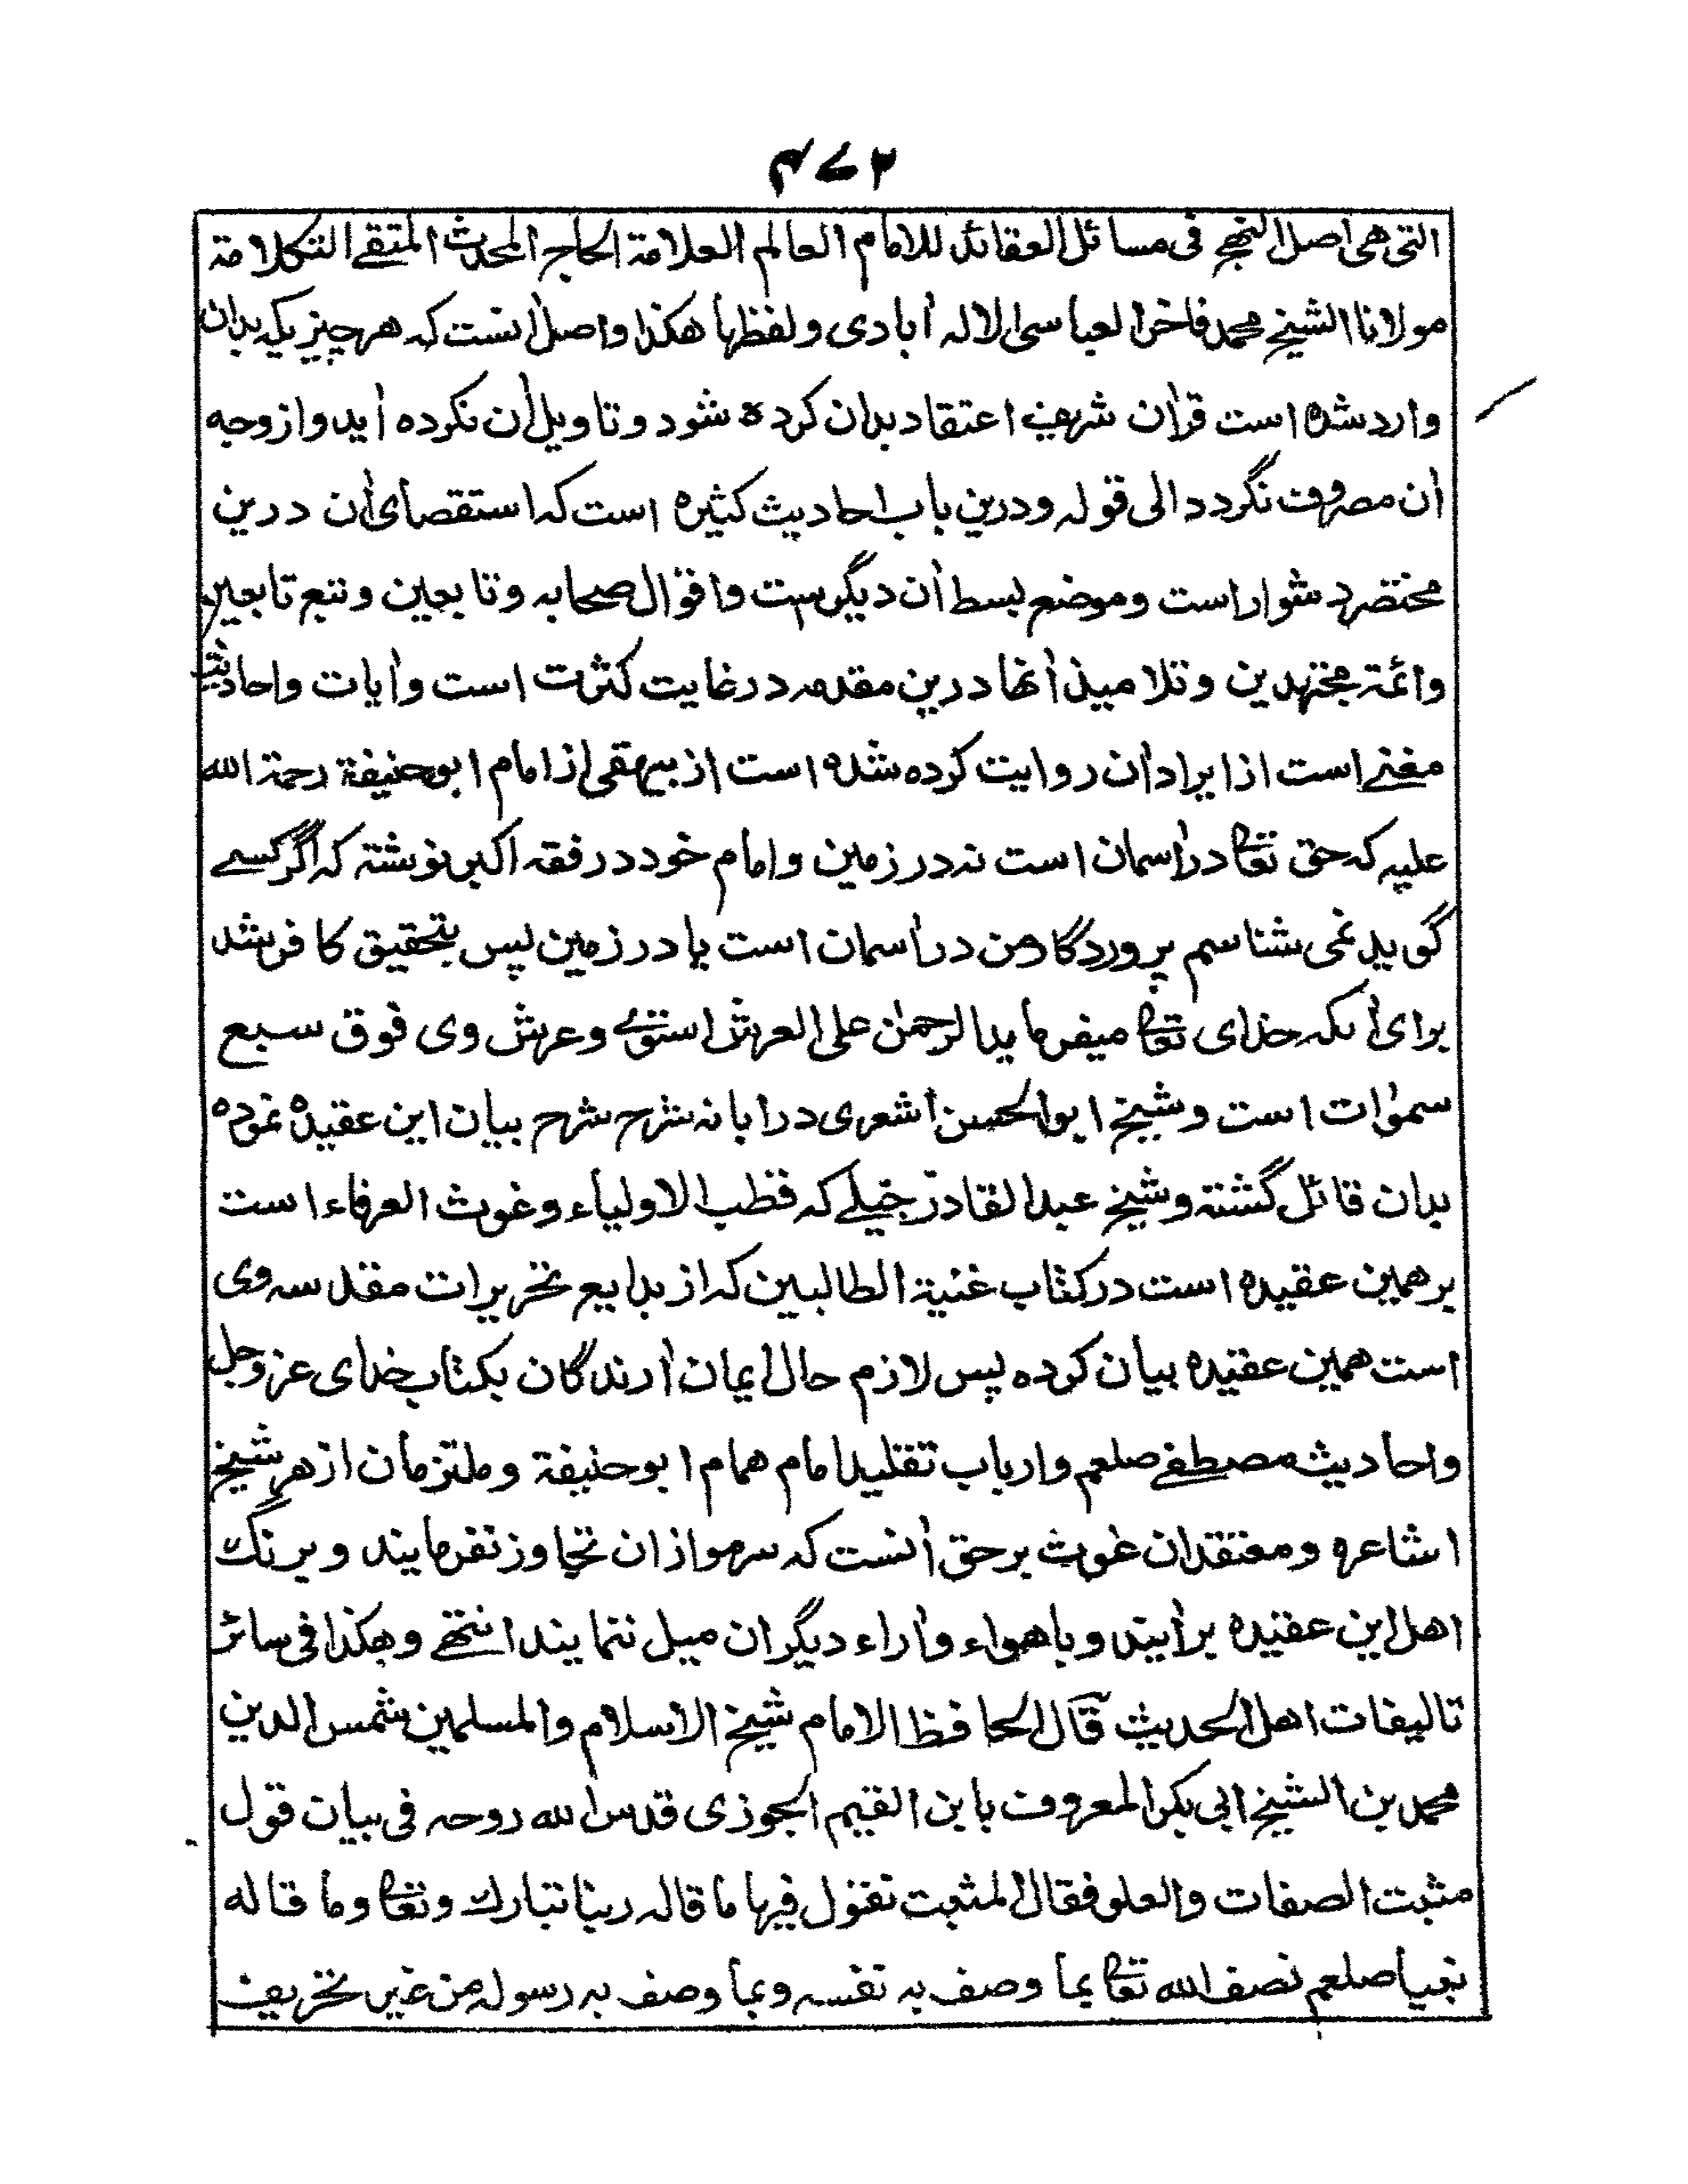 ۴۷۲
التی هی اصل النهج فی مسائل العقائد للامام العالم العلامة الحاج المحدث المتقی التکلامة
مولانا الشیخ محمد فاخر العباسی الاله اٰبادی ولفظها هکذا واصل اٰنست که هر چیزیکه بدان
وارد شده است قراٰن شریف اعتقاد بدان کرده شود وتاویل اٰن نکرده اٰید واز وجه
اٰن مصروف نگردد الی قوله ودرین باب احادیث کثیره است که استقصای اٰن درین
مختصر دشوار است وموضع بسط اٰن دیگرست واقوال صحابه وتابعین وتبع تابعین
وائمة مجتهدین وتلامیذ اٰنها درین مقدمه در غایت کثرت است واٰیات واحادیث
مغنی است از ایراد اٰن روایت کرده شده است از بیهقی از امام ابو حنیفة رحمة الله
علیه که حق تعالی در اٰسمان است نه در زمین وامام خود در فقه اکبر نوشته که اگر کسے
گوید نمی شناسم پروردگار من در اٰسمان است یا در زمین پس بتحقیق کافر شد
برای اٰنکه خدای تعالی میفرماید الرحمٰن علی العرش استوی وعرش وی فوق سبع
سمٰوات است وشیخ ابو الحسن اشعری در ابانه شرح شرح بیان این عقیده نموده
بدان قائل گشته وشیخ عبد القادر جیلے که قطب الاولیاء وغوث العرفاء است
بر همین عقیده است در کتاب غنیة الطالبین که از بدایع تحریرات مقدسه وی
است همین عقیده بیان کرده پس لازم حال ایمان اٰرندگان بکتاب خدای عز وجل
واحادیث مصطفے صلعم وارباب تقلید امام همام ابو حنیفة وملتزمان از هر شیخ
اشاعره ومعتقدان غوث برحق اٰنست که سر مو ازان تجاوز نفرمایند وبرنگ
اهل این عقیده براٰیند وباهواء واٰراء دیگران میل ننمایند انتهے وهکذا فی سائر
تالیفات اهل الحدیث قال الحافظ الامام شیخ الاسلام والمسلمین شمس الدین
محمد بن الشیخ ابی بکر المعروف بابن القیم الجوزی قدس الله روحه فی بیان قول
مثبت الصفات والعلو فقال المثبت نقول فیها ما قاله ربنا تبارك وتعالی وما قاله
نبینا صلعم نصف الله تعالی بما وصف به نفسه وبما وصف به رسوله من غیر تحریف